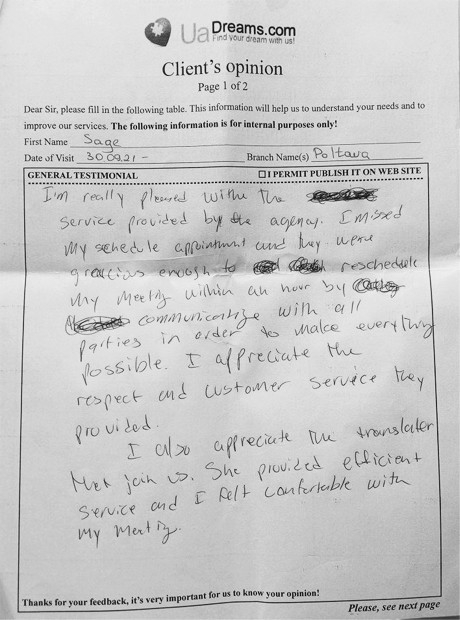 UaDreams.com
Find your dream with us!
Client's opinion
Page 1 of 2
Dear Sir, please fill in the following table. This information will help us to understand your needs and to
improve our services. The following information is for internal purposes only!
First Name Sage
Date of Visit 30.09.21 - Branch Name(s) Poltava
GENERAL TESTIMONIAL ☐ I PERMIT PUBLISH IT ON WEB SITE
I'm really pleased withe the
service provided by the agency. I missed
my schedule appointment and they were
greacious enough to reschedule
my meeting within an hour by
communicating with all
parties in order to make everything
possible. I appreciate the
respect and customer service they
provided.
I also appreciate the translater
that join us. She provided efficient
service and I felt comfortable with
my meeting.
Thanks for your feedback, it's very important for us to know your opinion!
Please, see next page